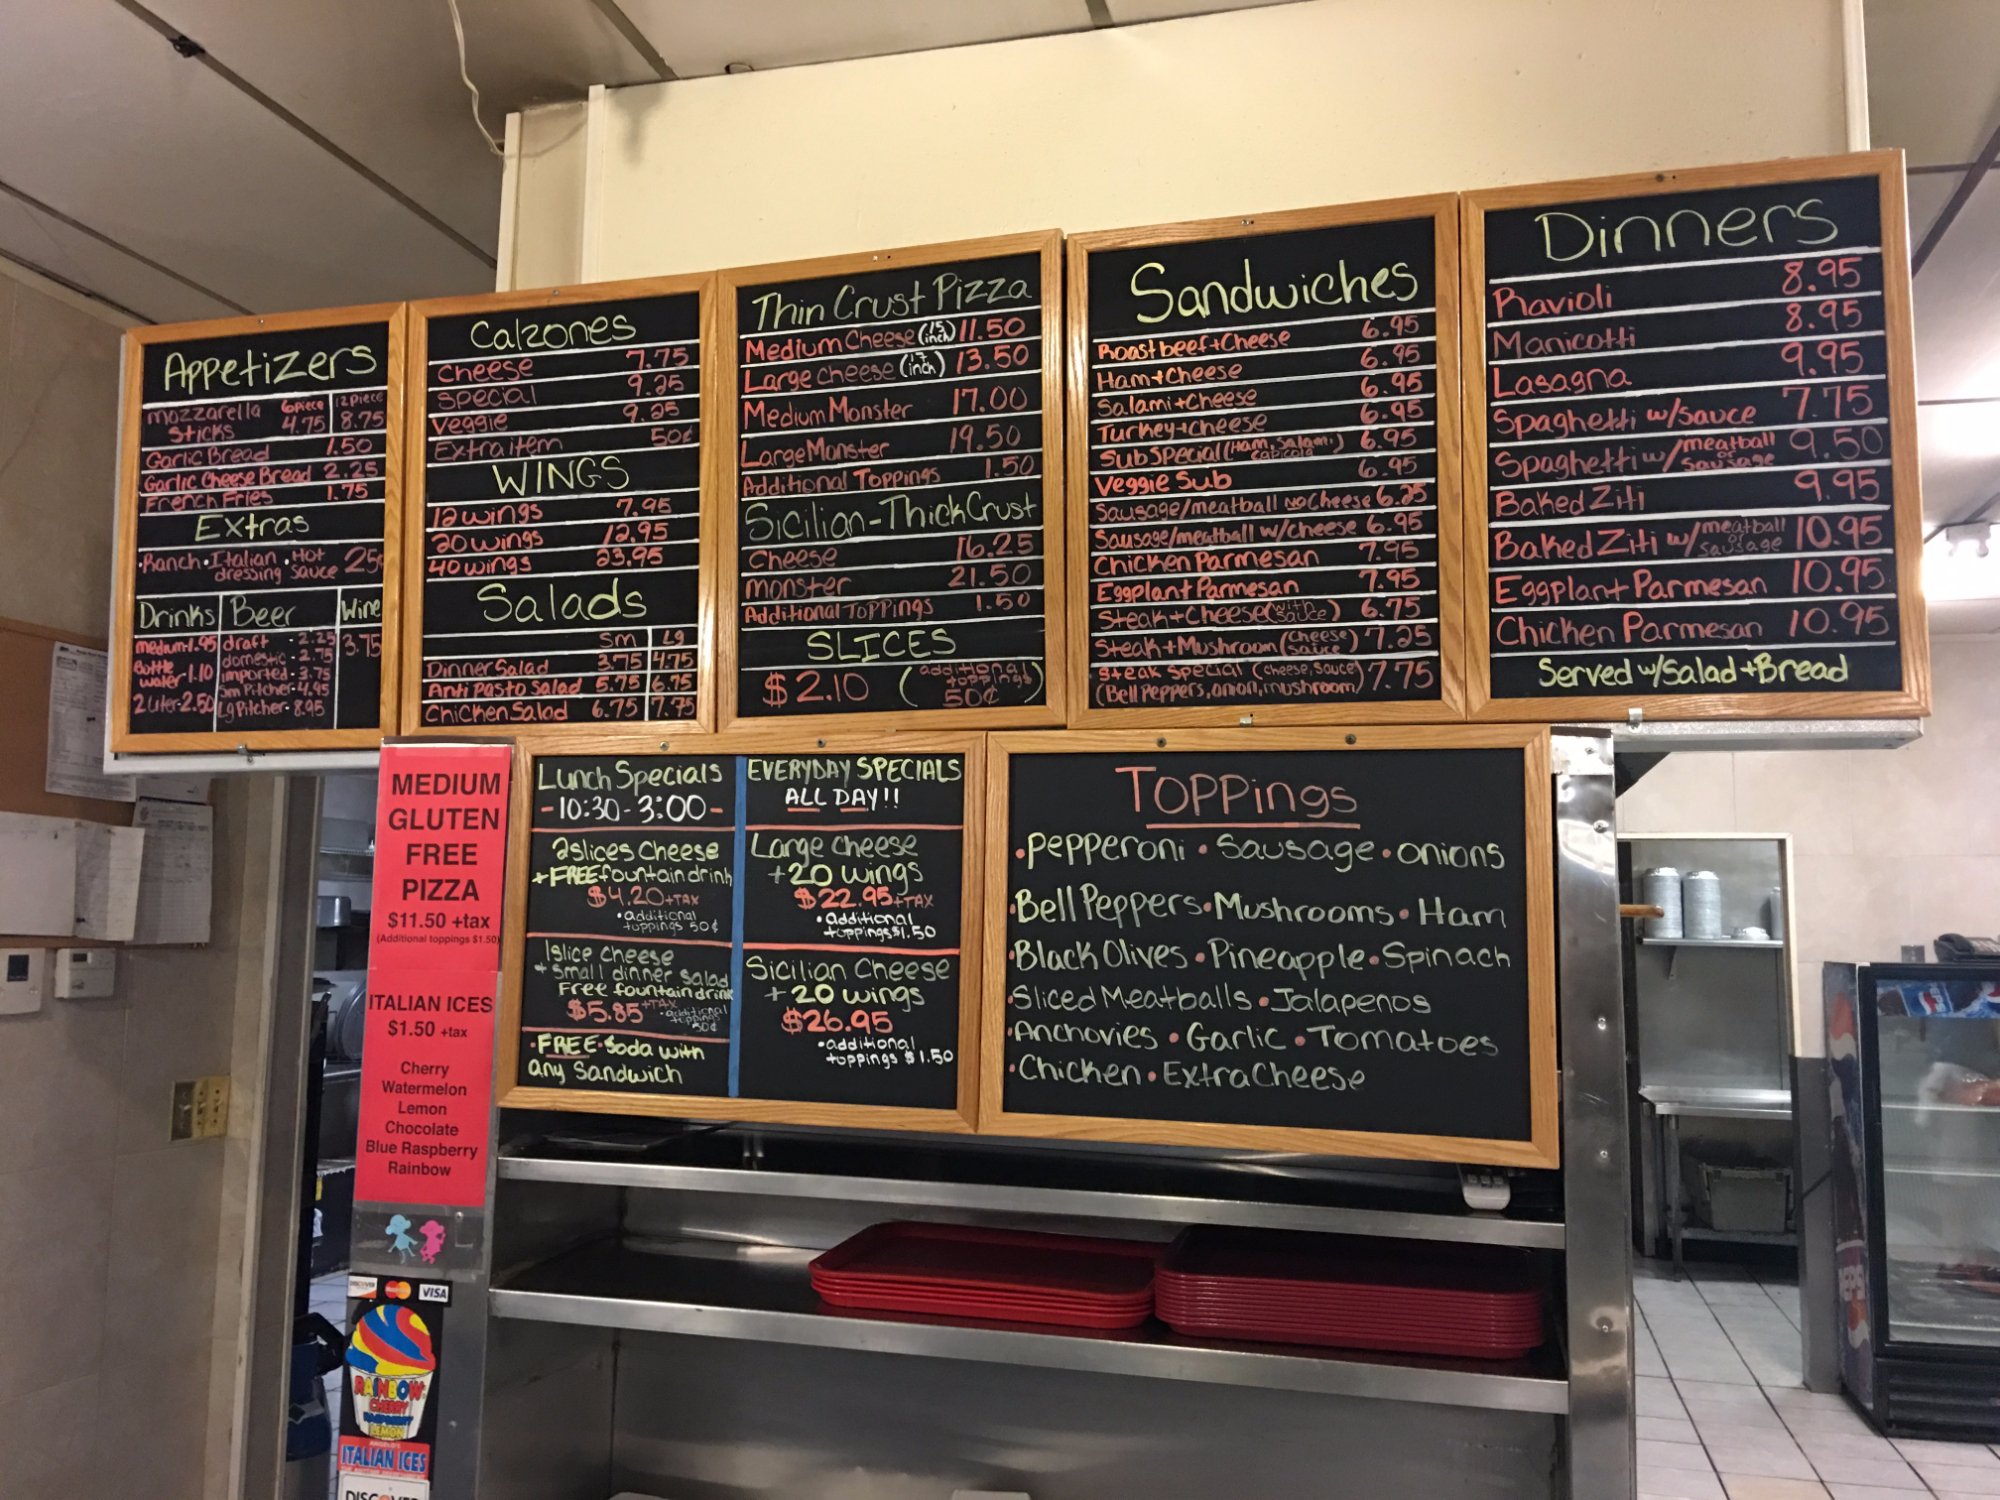 Appetizers
mozzarella sticks 6piece 4.75 12piece 8.75
Garlic Bread 1.50
Garlic Cheese Bread 2.25
French Fries 1.75
Extras
• Ranch • Italian dressing • Hot sauce 25¢
Drinks
medium-1.95
Bottle water-1.10
2 liter-2.50
Beer
draft - 2.25
domestic - 2.75
imported - 3.75
Sm Pitcher-4.95
Lg Pitcher-8.95
Wine
3.75
Calzones
Cheese 7.75
Special 9.25
Veggie 9.25
Extra item 50¢
WINGS
12 wings 7.95
20 wings 12.95
40 wings 23.95
Salads
Sm Lg
Dinner Salad 3.75 4.75
Anti Pasto Salad 5.75 6.75
Chicken Salad 6.75 7.75
Thin Crust Pizza
Medium Cheese (15 inch) 11.50
Large cheese (17 inch) 13.50
Medium Monster 17.00
Large Monster 19.50
Additional Toppings 1.50
Sicilian-Thick Crust
Cheese 16.25
monster 21.50
Additional Toppings 1.50
SLICES
$2.10 (additional toppings 50¢)
Sandwiches
Roast beef+Cheese 6.95
Ham+Cheese 6.95
Salami+Cheese 6.95
Turkey+cheese 6.95
Sub Special (Ham, Salami, capicola) 6.95
Veggie Sub 6.95
Sausage/meatball no Cheese 6.25
Sausage/meatball w/cheese 6.95
Chicken Parmesan 7.95
Eggplant Parmesan 7.95
Steak+Cheese (with sauce) 6.75
Steak+Mushroom (cheese sauce) 7.25
Steak Special (cheese, sauce)
(Bell Peppers, onion, mushroom) 7.75
Dinners
Ravioli 8.95
Manicotti 8.95
Lasagna 9.95
Spaghetti w/sauce 7.75
Spaghetti w/meatball or sausage 9.50
Baked Ziti 9.95
Baked Ziti w/meatball or sausage 10.95
Eggplant Parmesan 10.95
Chicken Parmesan 10.95
Served w/Salad+Bread
MEDIUM
GLUTEN
FREE
PIZZA
$11.50 +tax
(Additional toppings $1.50)
ITALIAN ICES
$1.50 +tax
Cherry
Watermelon
Lemon
Chocolate
Blue Raspberry
Rainbow
Lunch Specials
-10:30-3:00-
2slices cheese
+FREE fountain drink
$4.20+TAX
• additional
toppings 50¢
1slice cheese
+ small dinner salad
Free fountain drink
$5.85+TAX • additional toppings 50¢
• FREE • Soda with
any Sandwich
EVERYDAY SPECIALS
ALL DAY!!
Large cheese
+20 wings
$22.95+TAX
• additional
toppings $1.50
Sicilian Cheese
+ 20 wings
$26.95
• additional
toppings $1.50
Toppings
• Pepperoni • Sausage • onions
• Bell Peppers • Mushrooms • Ham
• Black Olives • Pineapple • Spinach
• Sliced Meatballs • Jalapenos
• Anchovies • Garlic • Tomatoes
• Chicken • Extra Cheese
DISCOVER MasterCard VISA
RAINBOW
CHERRY
RASPBERRY
LEMON
ANGELO'S
ITALIAN ICES
DISCOVER
PEPSI